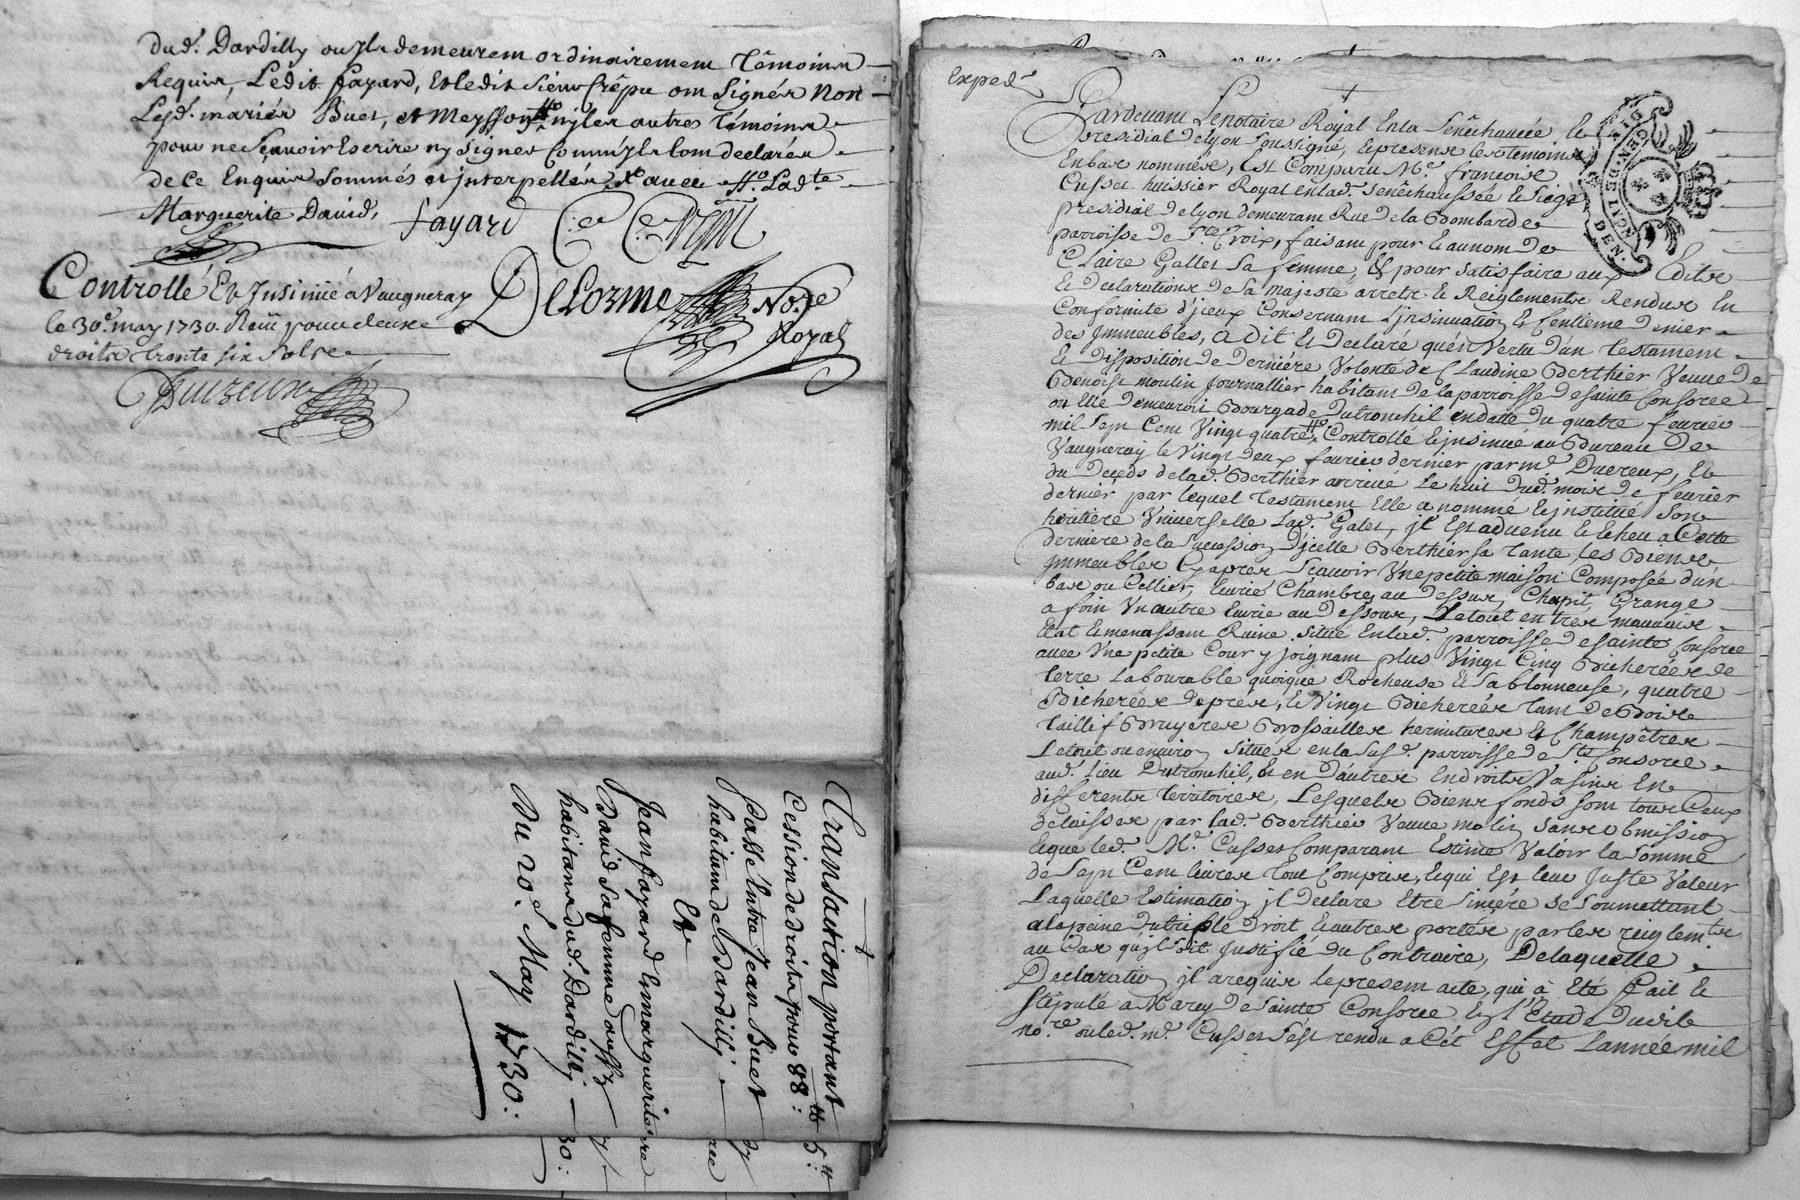 dud.t Dardilly ou ils demeurent ordinairement témoins
Requis, Ledit fayard, et ledit sieur Crêpu ont signés Non
Lesd. mariés Buet, et Meysson ny les autres témoins
pour ne sçavoir Escrire ny signer Comm'ils l'ont declarés
de ce Enquis sommés et interpellés, avec Lad.te
Marguerite David,
fayard
DeLorme No.re
Royal
Controllé Et Insinué a Vaugneray
le 30.e may 1730. Receu pour deux
droits trente six sols
Transaction portant
Cession de droits pour 88:
Passé Entre Jean Buet
habitant de Dardilly
Et
Jean fayard Et marguerite
David sa femme aussy
habitans dud. Dardilly
Du 20.e May 1730:
5:
30:
Exped.e
GEN. DE LYON
DEN.
Pardevant Le notaire Royal En la Senêchaucée et
presidial de lyon soussigné, et presens les temoins
En bas nommés, Est Comparu M.e francois
Cusset huissier Royal en lad. Senêchaussée et Siege
presidial de lyon demeurant Rue de la Bombarde
parroisse de S.te Croix, faisant pour et au nom de
Claire Gallet sa femme, Et pour satisfaire aux Edits
Et declarations de sa majesté arrets et Reiglements Rendus En
Conformité d'iceux Consernant L'insinuation et Centieme denier
des Immeubles, a dit Et declaré qu'en vertu d'un testament
Et disposition de derniére volonté de Claudine Berthier veuve de
Benoist moulin journallier habitant de la parroisse de sainte Consorce
ou Elle demeuroit Bourgade du tronchil en datte du quatre fevrier
mil sept Cent vingt quatre, Controllé et insinué au Bureau de
Vaugneray le vingt deux fevrier dernier par m.e Ducreux, Et
du deçeds de lad. Berthier arrivé le huit dud. mois de fevrier
dernier par lequel testament Elle a nommé et institué son
heritiere Universelle Lad. Galet, il Est advenu et Echeu a Cette
derniere de la succession d'icelle Berthier sa tante, les Biens
immeubles Cy apres sçavoir Une petite maison Composée d'un
bas ou Cellier, Ecurie, Chambres au dessus, Chapit, Grange
a foin Un autre Ecurie au dessous, Le tout en tres mauvais
Etat et menassant Ruine situé En lad. parroisse de sainte Consorce
avec Une petite Cour y joignant plus vingt Cinq Bicherées de
terre Labourable quoique Rocheuse et sablonneuse, quatre
Bicherées de pres, et vingt Bicherées tant de Bois
taillif Bruyeres Brossailles hermitures Et Champêtres
Le tout ou environ situés en la susd. parroisse de S.te Consorce
aud. Lieu Du tronchil, et en d'autres Endroits voisins En
differents territoires, Lesquels Biens fonds sont tous Ceux
delaissés par lad. Berthier veuve molin sans obmission
Et que led. M.e Cusset Comparant Estime valoir la somme
de sept Cent livres tout Compris, Et qui Est leur juste valeur
Laquelle Estimation il declare Etre sincére se soumettant
a la peine du triple droit et autres portés par les reiglem.ts
au Cas qu'il soit Justifié du Contraire, De laquelle
Declaration il a requis le present acte, qui a Eté fait Et
stipulé a Marcy de Sainte Consorce Et L'Etude dudit
no.re ou led. m.e Cusset s'est rendu a Cét Effet L'année mil